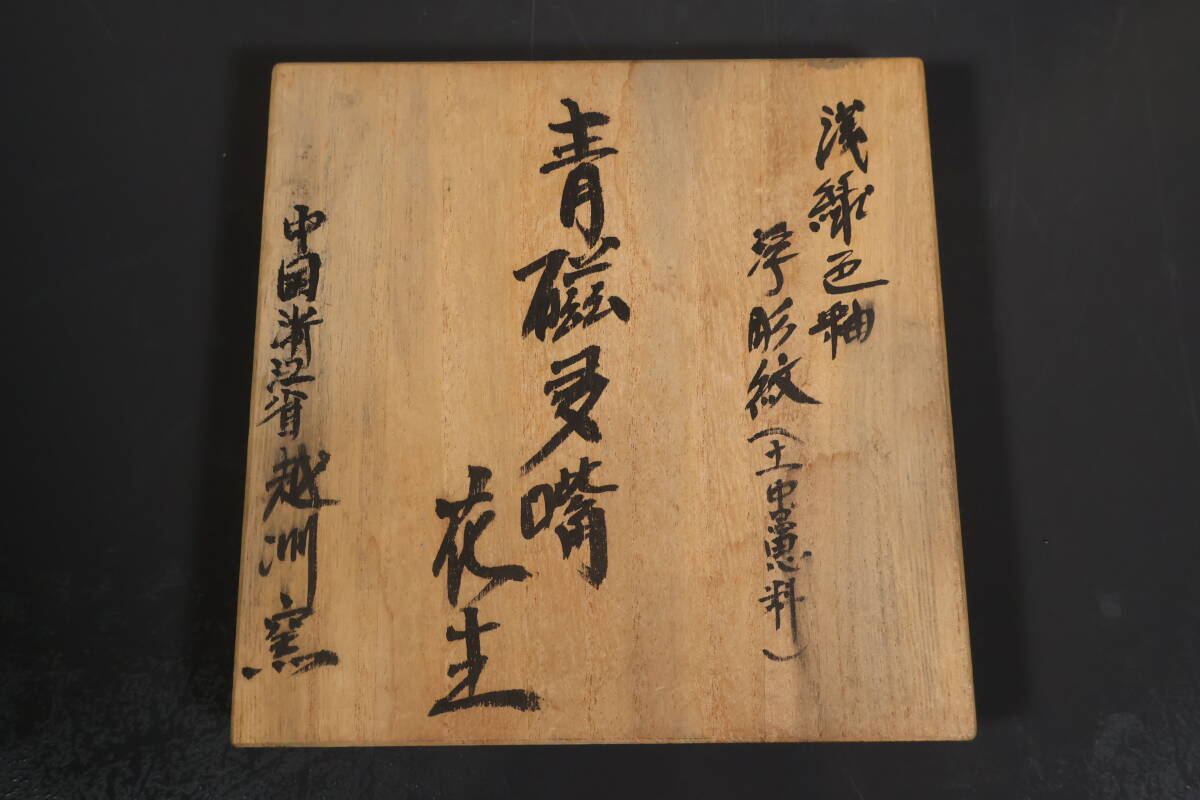 浅緑色釉
浮彫紋(土中
料)
青磁多嘴
花生
中国浙江省越州窯